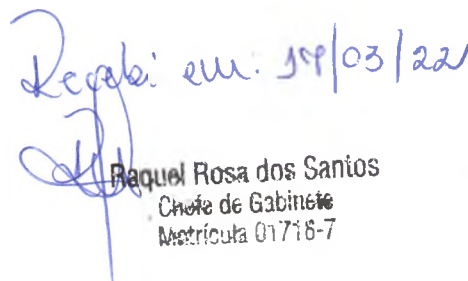 Recebi em: 17/03/22
Raquel Rosa dos Santos
Chefe de Gabinete
Matrícula 01716-7